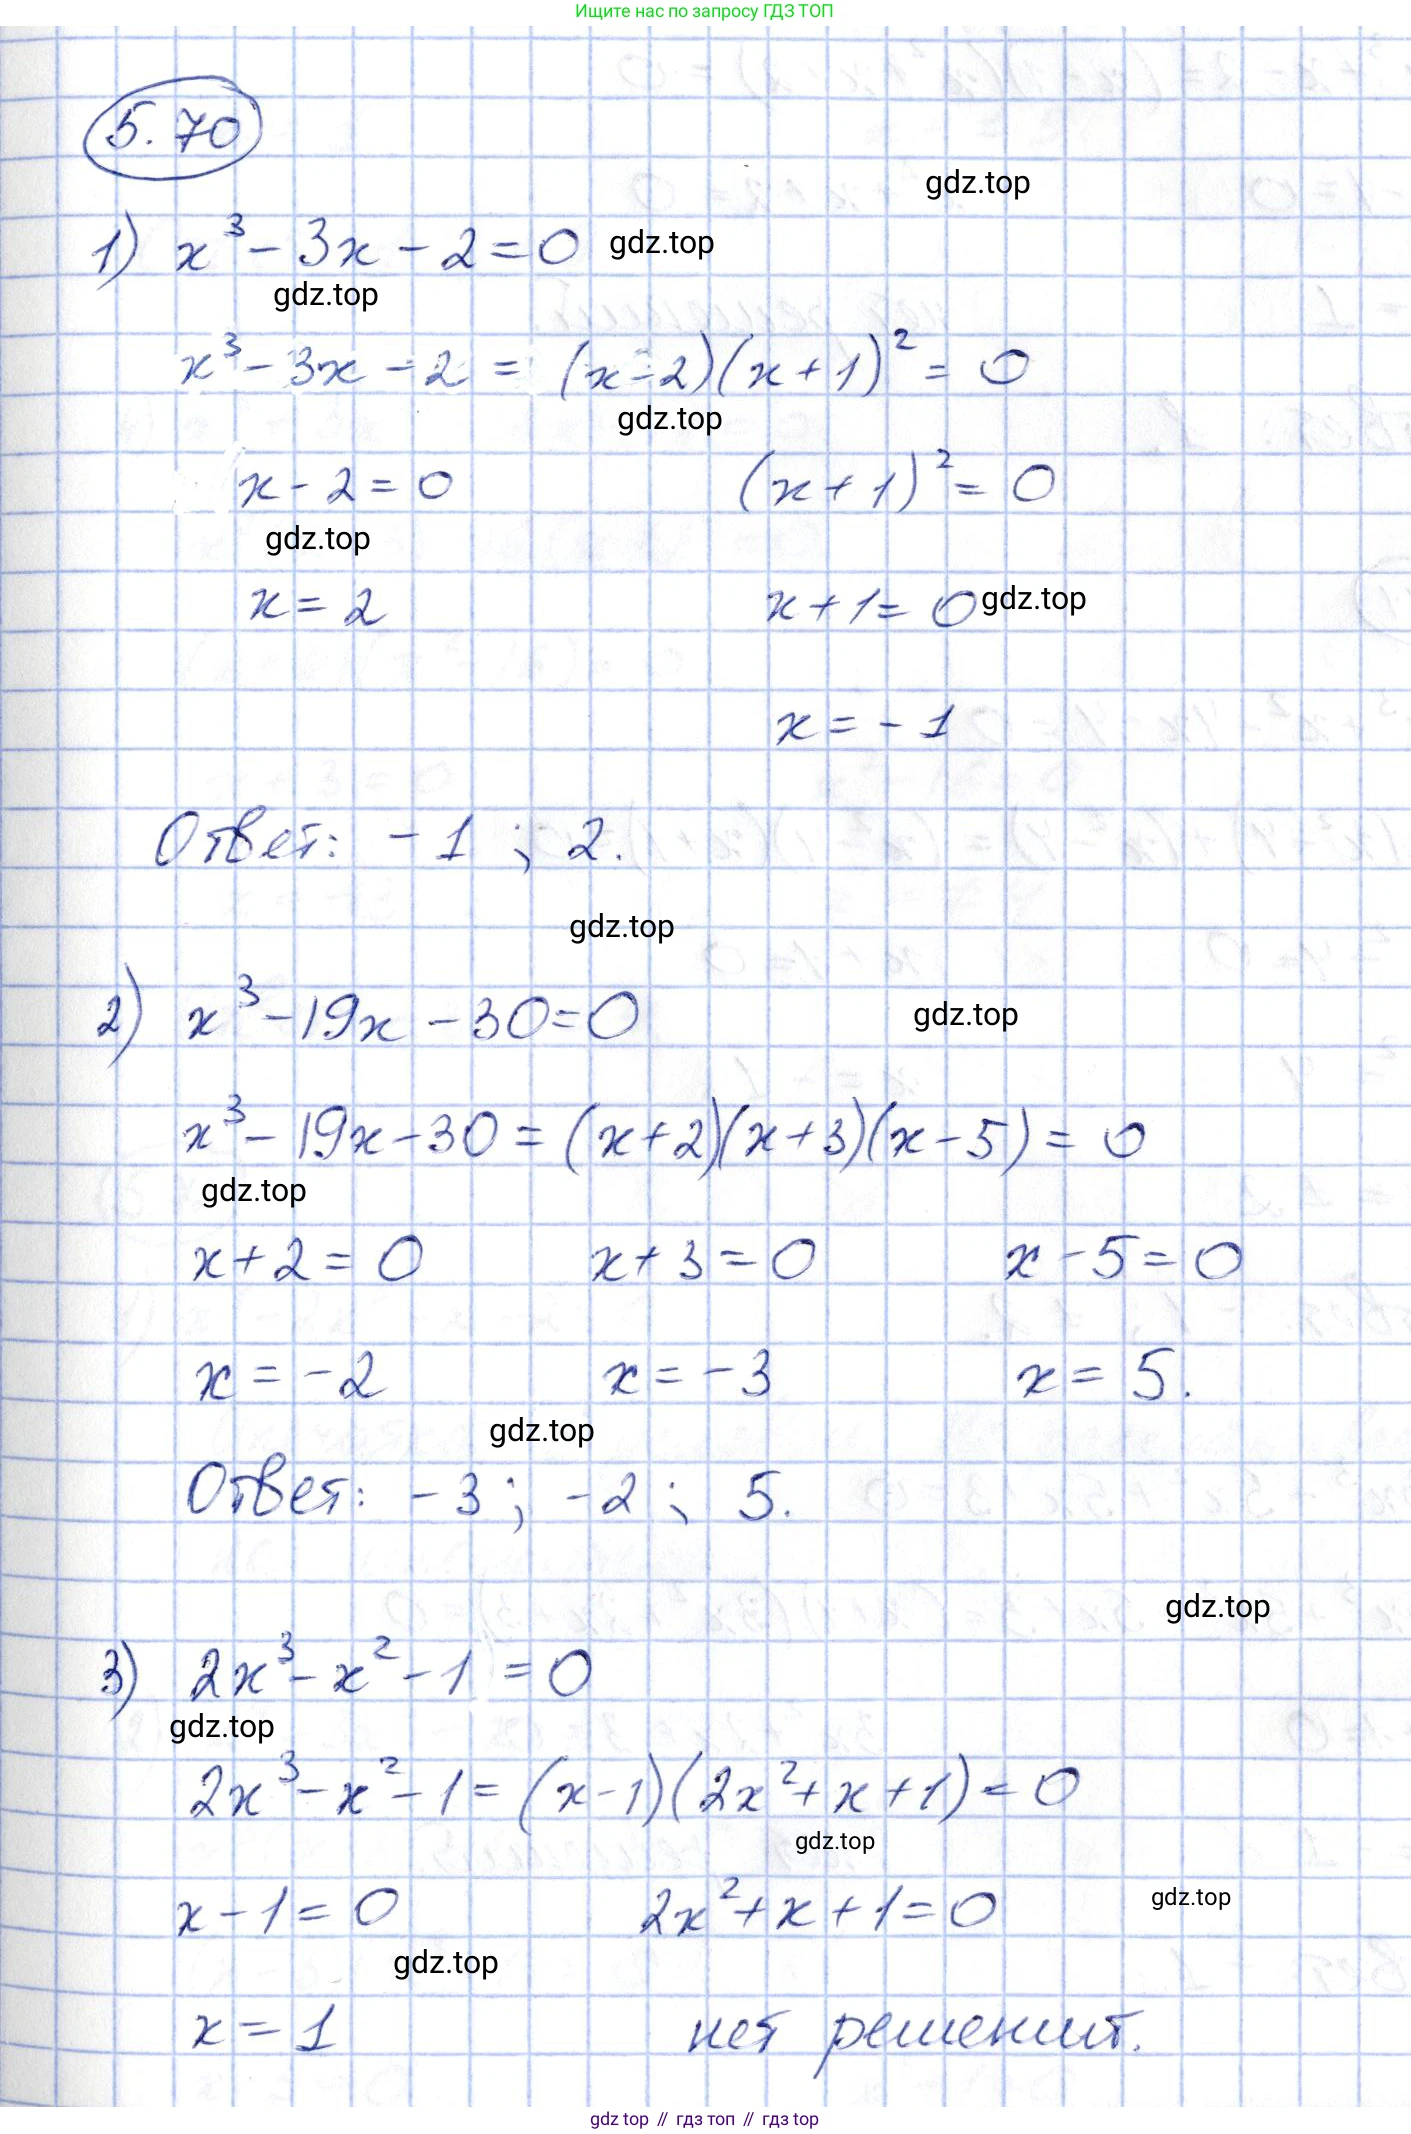 Ищите нас по запросу ГДЗ ТОП
5.70
gdz.top
1) x³ - 3x - 2 = 0 gdz.top
gdz.top
x³ - 3x - 2 = (x-2)(x+1)² = 0
gdz.top
x - 2 = 0 (x+1)² = 0
gdz.top
x = 2 x+1 = 0 gdz.top
x = -1
Ответ: -1 ; 2.
gdz.top
2) x³ - 19x - 30 = 0 gdz.top
x³ - 19x - 30 = (x+2)(x+3)(x-5) = 0
gdz.top
x+2 = 0 x+3 = 0 x-5 = 0
x = -2 x = -3 x = 5.
gdz.top
Ответ: -3 ; -2 ; 5.
gdz.top
3) 2x³ - x² - 1 = 0
gdz.top
2x³ - x² - 1 = (x-1)(2x²+x+1) = 0
gdz.top
x - 1 = 0 2x²+x+1 = 0 gdz.top
gdz.top
x = 1 нет решений.
gdz top // гдз топ // гдз top